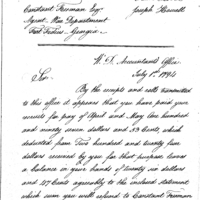 Joseph Howell
Constant Freeman Esqr
Agent War Department
Fort Fidius Georgia
W. D. Accountants Office
July 1st 1794
Sir,
By the receipts and rolls transmitted
to this office it appears that you have paid your
receipts for pay of April and May two hundred
and ninety seven dollars and 53 Cents which
deducted from two hundred and twenty five
dollars received by you for that purpose leaves
a balance in your hands of twenty six dollars
and 47 Cents agreeably to the inclosed statement
which sum you will refund to Constant Freeman